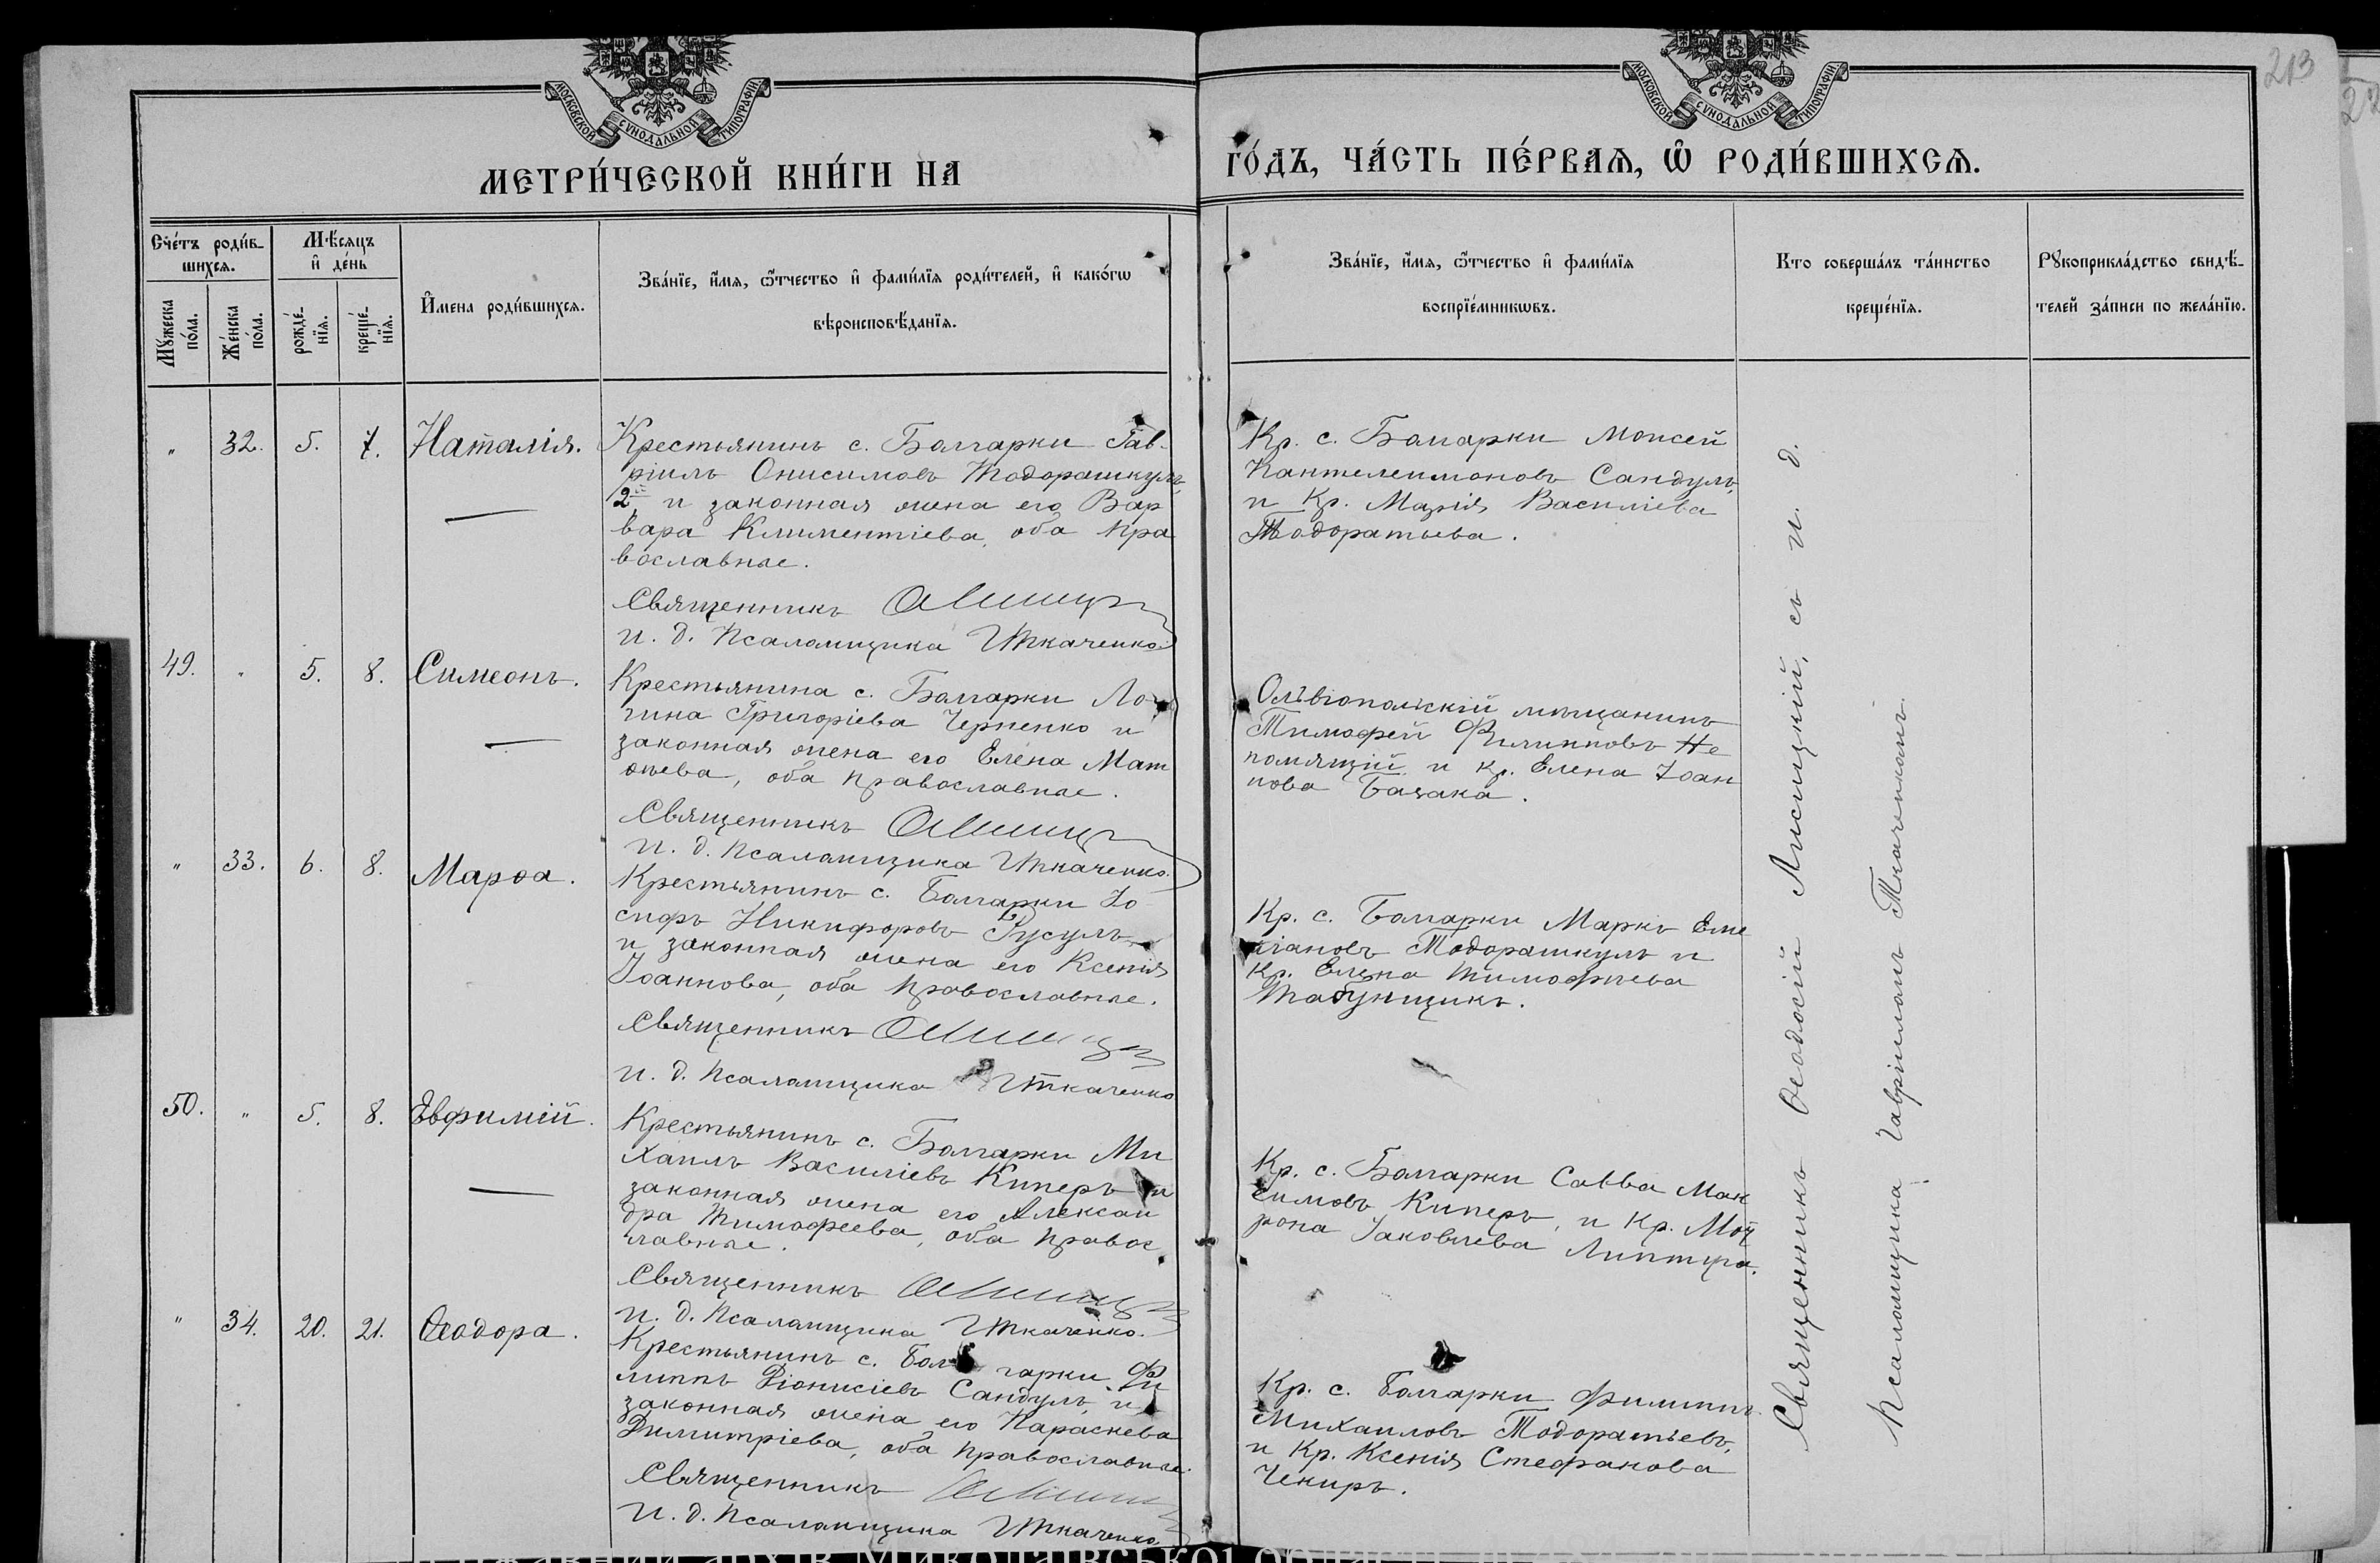 МОСКОВСКОЙ СѴНОДАЛЬНОЙ ТИПОГРАФІИ
МОСКОВСКОЙ СѴНОДАЛЬНОЙ ТИПОГРАФІИ
213
МЕТРИ́ЧЕСКОЙ КНИ́ГИ НА
ГО́ДЪ, ЧА́СТЬ ПЕ́РВАѦ, Ѡ҆ РОДИ́ВШИХСѦ.
Сче́тъ роди́в-
шихсѧ.
Мѣ́сѧцъ
и҆ де́нь
Мꙋ́жеска
по́ла.
Же́нска
по́ла.
рожде́-
нїѧ.
креще́-
нїѧ.
И҆мена роди́вшихсѧ.
Зва́нїе, и҆́мѧ, ѻ҆́тчество и҆ фами́лїѧ роди́телей, и҆ како́гѡ
вѣроисповѣ́данїѧ.
Зва́нїе, и҆́мѧ, ѻ҆́тчество и҆ фами́лїѧ
воспрїе́мникѡвъ.
Кто соверша́лъ та́инство
креще́нїѧ.
Рꙋкоприкла́дство свидѣ́-
телей за́писи по жела́нїю.
" 32. 5. 7. Наталія.
Крестьянинъ с. Болгарки Гав-
ріилъ Онисимовъ Тодорашкулъ
2й и законная жена его Вар
вара Климентіева, оба пра
вославные.
Священникъ
И. д. Псаломщика Ткаченко
Кр. с. Болгарки Моисей
Пантелеимоновъ Сандулъ,
и Кр. Марія Василіева
Тодоратьева.
49. " 5. 8. Симеонъ.
Крестьянина с. Болгарки Ло
гина Григоріева Черненко и
законная жена его Елена Мат
ѳеева, оба православные.
Священникъ
И. д. Псаломщика Ткаченко.
Ольвіопольскій мѣщанинъ
Тимофей Филипповъ Не
помящій и кр. Елена Іоан
нова
" 33. 6. 8. Марѳа.
Крестьянинъ с. Болгарки Іо
сифъ Никифоровъ Русулъ
и законная жена его Ксенія
Іоаннова, оба православные.
Священникъ
И. д. Псаломщика Ткаченко
Кр. с. Болгарки Маркъ Еме
ліановъ Тодорашкулъ и
Кр. Елена Тимофѣева
Табунщикъ.
50. " 5. 8. Евфимій.
Крестьянинъ с. Болгарки Ми
хаилъ Василіевъ Киперъ и
законная жена его Алексан
дра Тимофеева, оба правос
лавные.
Священникъ
И. д. Псаломщика Ткаченко.
Кр. с. Болгарки Савва Мак
симовъ Киперъ, и Кр. Мот
рона Іаковлева Липтуга.
" 34. 20. 21. Ѳеодора.
Крестьянинъ с. Болгарки Фи
липпъ Діонисіевъ Сандулъ, и
законная жена его Параскева
Димитріева, оба православные.
Священникъ
И. д. Псаломщика Ткаченко
Кр. с. Болгарки Филиппъ
Михаиловъ Тодоратьевъ,
и Кр. Ксенія Стефанова
Чекиръ.
Священникъ Ѳеодосій Лисицкій, съ и. д.
Псаломщика Гавріиломъ Ткаченкомъ.